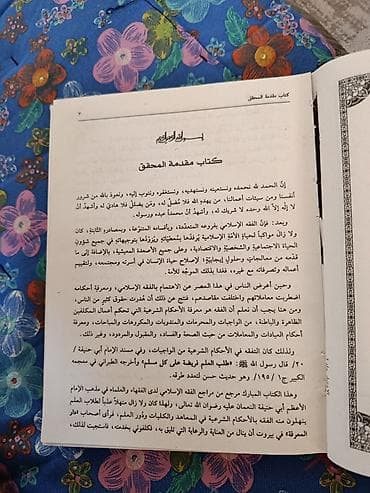 كتاب مقدمة المحقق
٣
بسم الله الرحمن الرحيم
كتاب مقدمة المحقق
إنَّ الحمد لله نحمده ونستعينه ونستهديه، ونستغفره ونتوب إليه، ونعوذ بالله من شرور
أنفسنا ومن سيئات أعمالنا، من يهدِهِ الله فلا مُضِلَّ له، ومَن يضلل فلا هادي له وأشهدُ أنْ
لا إلٰه إلَّا الله وحده لا شريك له، وأشهدُ أنَّ محمداً عبده ورسوله.
وبعد: فإنَّ الفقه الإسلامي بفروعه المتعددة، وبأقسامه المتنوعة، وبمصادره الثابتة، كان
ولا زال مواكباً لحياةِ الأمّةِ الإسلامية يُرْفِدُها بمُعطياتِهِ ويُزوِّدُها بتوجيهاته في جميع شؤونِ
الحياة الاجتماعية والشخصيَّة والاقتصادية، وعلى جميع الأصعدة المعيشية، بالإضافة إلى ما
قدّمه من معالجاتٍ وحلولٍ إيجابيةٍ؛ لإصلاح حياة الإنسان في أسرته ومجتمعه، ولتقييم
أعماله وتصرفاته مع غيره، فغدا بذلك الموجّه للأمة
وحين أعرض الناس في هذا العصر عن الاهتمام بالفقه الإسلامي، ومعرفة أحكامه
اضطربت معاملاتهم واختلفت مقاصدهم، فنتج عن ذلك أن هُدرت حقوق كثير من الناس،
ومن هنا يجب أن نعلم أن الفقه هو معرفة الأحكام الشرعية التي تحكم أعمال المكلفين
الظاهرة والباطنة، من الواجبات والمحرمات والمندوبات والمكروهات والمباحات، ومعرفة
أحكام العبادات والمعاملات من حيث الصحة والفساد، والمقبول والمردود، وغير ذلك.
ولذلك كان التفقه في الأحكام الشرعية من الواجبات، وفي مسند الإمام أبي حنيفة /
٢٠/ قال رسول الله ﷺ: «طلب العلم فريضة على كل مسلم» وأخرجه الطبراني في معجمه
الكبير ج١/١٩٥/ وهو حديث حسن لتعدد طرقه.
وهذا الكتاب المبارك مرجع من مراجع الفقه الإسلامي لدى الفقهاء والعلماء في مذهب الإمام
الأعظم أبي حنيفة النعمان عليه رضوان الله تعالى، ولهذا كان ولا زال منهلاً عذباً لطلاب العلم
ينهلون منه الفقه بالأحكام الشرعية في المعاهد والكليات ودُور العلم، فرأى أصحاب «دار
المعرفة» في بيروت أن ينال من العناية والرعاية التي تليق به، فكلفوني بخدمته، فاستجبت لذلك،